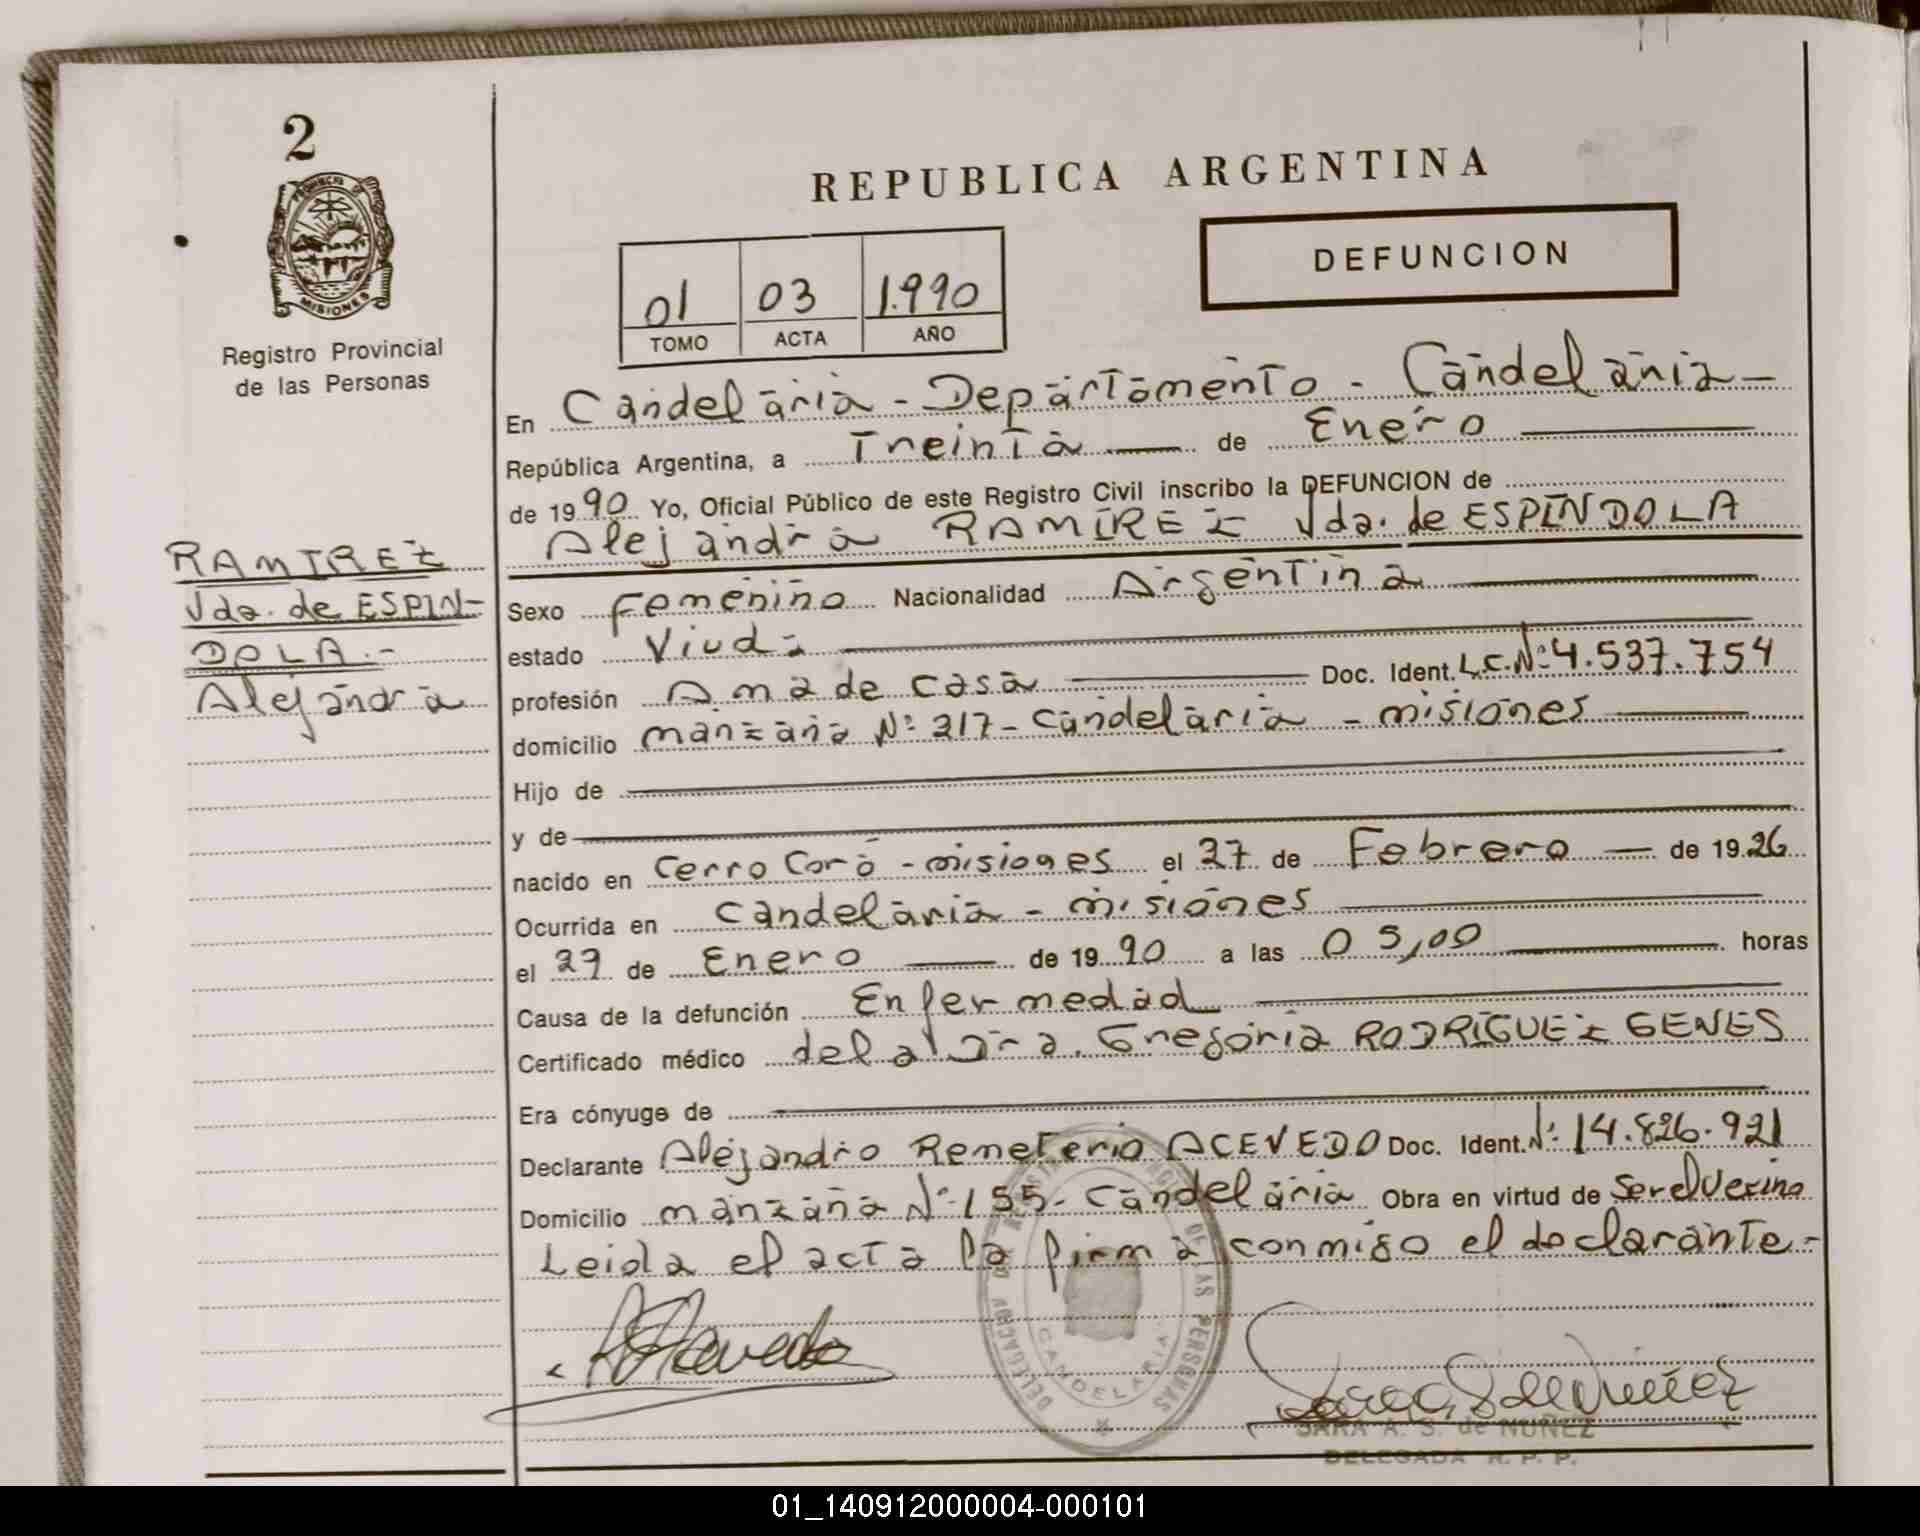 2
PROVINCIA DE
MISIONES
Registro Provincial
de las Personas
REPUBLICA ARGENTINA
DEFUNCION
01 03 1.990
TOMO ACTA AÑO
En Candelaria - Departamento - Candelaria -
República Argentina, a Treinta de Enero
de 1990 Yo, Oficial Público de este Registro Civil inscribo la DEFUNCION de
Alejandra RAMIREZ Vda. de ESPINDOLA
RAMIREZ
Vda. de ESPIN-
DOLA.-
Alejandra
Sexo Femenino Nacionalidad Argentina
estado Viuda
profesión Ama de casa Doc. Ident. L.C.Nº 4.537.754
domicilio manzana Nº 217 - Candelaria - misiones
Hijo de
y de
nacido en Cerro Corá - misiones el 27 de Febrero de 1926
Ocurrida en Candelaria - misiones
el 29 de Enero de 1990 a las 05,00 horas
Causa de la defunción Enfermedad
Certificado médico de la Dra. Gregoria RODRIGUEZ GENES
Era cónyuge de
Declarante Alejandro Remeterio ACEVEDO Doc. Ident. Nº 14.826.921
Domicilio manzana Nº 155 - Candelaria Obra en virtud de Ser el Vecino
Leida el acta la firma conmigo el declarante.-
CANDELARIA
SARA A. S. de NUÑEZ
DELEGADA R. P. P.
01_140912000004-000101